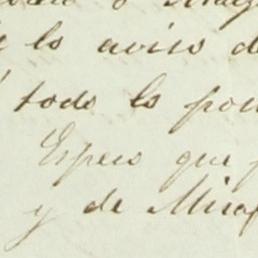 lo aviso d
todo lo po
Espero que
y de Mira